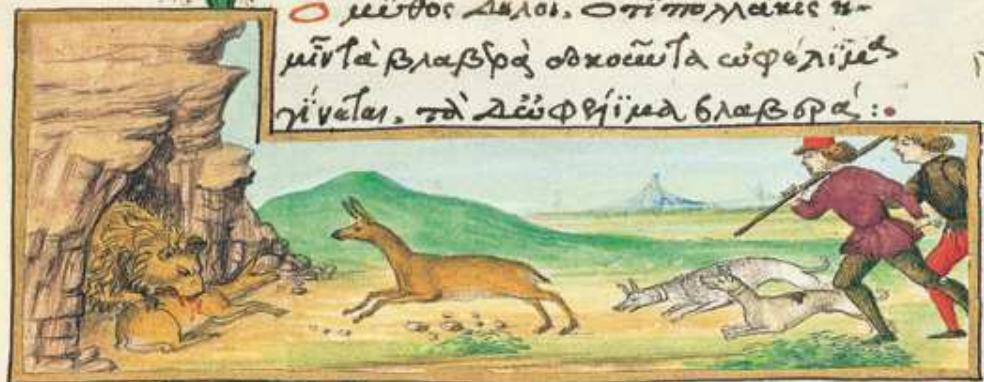 Ὁ μῦθος δηλοῖ. ὅτι πολλάκις ἡ-
μῖν τὰ βλαβερὰ δοκοῦντα ὠφέλιμα
γίνεται. τὰ δὲ ὠφέλιμα βλαβερά:.